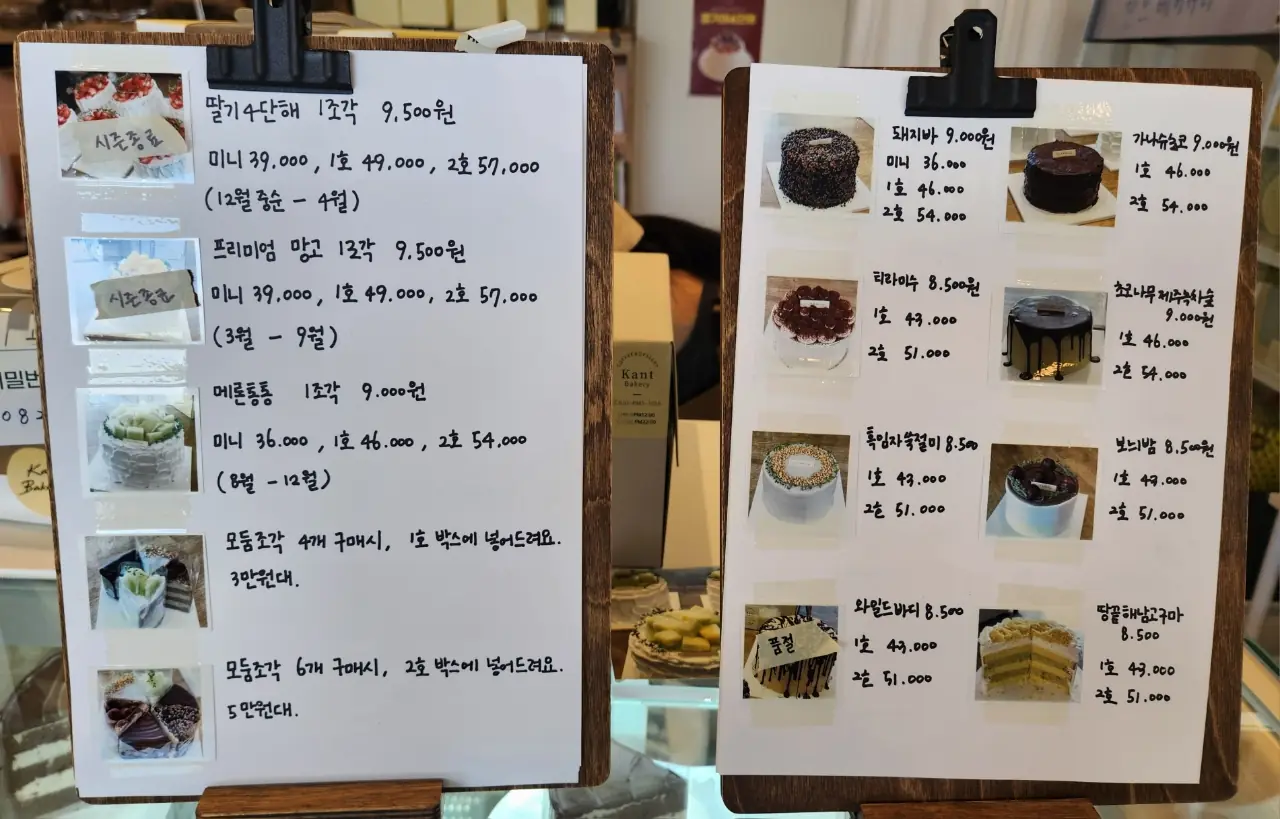 시즌종료
딸기4단해 1조각 9,500원
미니 39.000, 1호 49.000, 2호 57,000
(12월 중순 - 4월)
시즌종료
프리미엄 망고 1조각 9.500원
미니 39.000, 1호 49.000, 2호 57.000
(3월 - 9월)
메론통통 1조각 9.000원
미니 36.000, 1호 46.000, 2호 54.000
(8월 - 12월)
모둠조각 4개 구매시, 1호 박스에 넣어드려요.
3만원대.
모둠조각 6개 구매시, 2호 박스에 넣어드려요.
5만원대.
Kant
Bakery
돼지바 9.000원
미니 36.000
1호 46.000
2호 54.000
가나슈쇼코 9.000원
1호 46.000
2호 54.000
티라미수 8.500원
1호 43.000
2호 51.000
초코나무제주녹차숲
9.000원
1호 46.000
2호 54.000
흑임자쑥절미 8.500
1호 43.000
2호 51.000
보늬밤 8.500원
1호 43.000
2호 51.000
품절
와일드바디 8.500
1호 43.000
2호 51.000
땅끝해남고구마
8.500
1호 43.000
2호 51.000